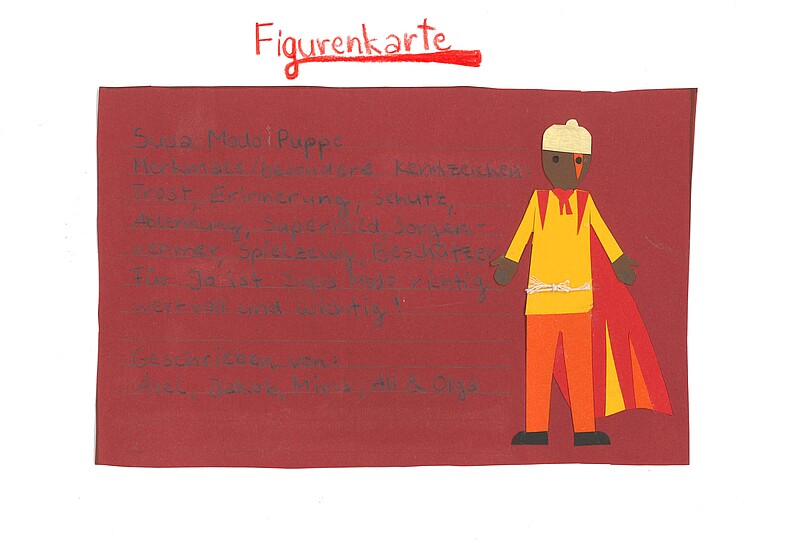 Figurenkarte
Supa Modo Puppe
Merkmale/besondere Kennzeichen:
Trost, Erinnerung, Schutz,
Ablenkung, Superheld, Sorgen-
nehmer, Spielzeug, Beschützer
Für Jo ist Supa Modo richtig
wertvoll und wichtig!
Geschrieben von:
Jakob, Mina, Ali & Olga